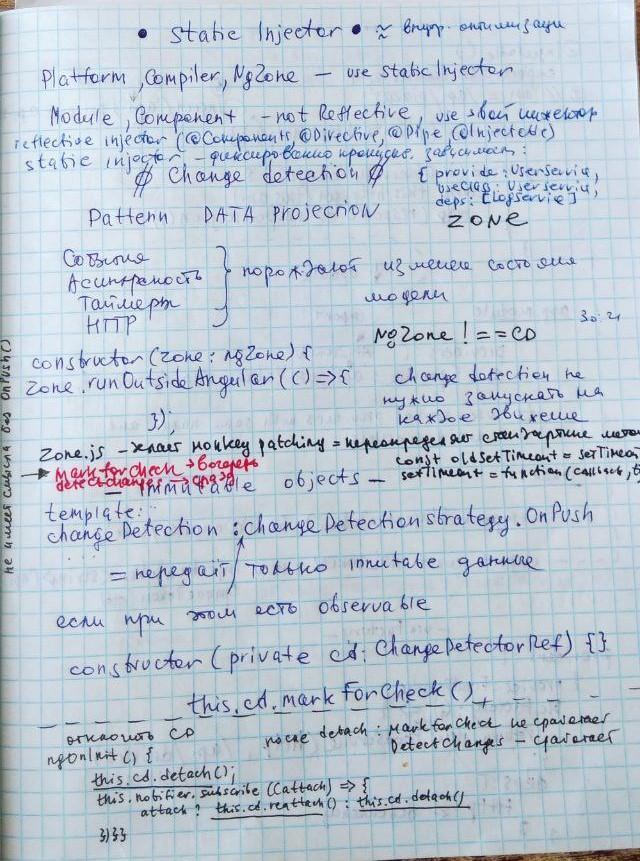 • Static Injector • ≈ внутр. оптимизаци
Platform, Compiler, NgZone – use staticInjector
Module, Component – not Reflective, use свой инжектор
reflective injector (@Components @Directive, @Pipe @Injectable)
static injector – фиксированно зависимост:
∅ Change detection ∅ { provide: UserService,
useClass: UserService,
deps: [LogService]
Pattern DATA projection
ZONE
События
Асинхроность
Таймеры
HTTP
} порождают измене состояния
модели
NgZone ! == CD
30:21
constructor (zone: ngZone) {
zone.runOutsideAngular(() => {
});
change detection не
нужно запускать на
каждое движение
Zone.js – делает monkey patching = переопределяет стандартные мето
const oldSetTimeout = setTimeou
setTimeout = function (callback, t
mark for check → вогереть
detectchanges → сразу
не имеет смысла без OnPush()
– immutable objects –
template:
changeDetection: changeDetectionStrategy.OnPush
= передаёт только immutabe данные
если при этом есть observable
constructor (private cd: ChangeDetectorRef) {}
this.cd.markForCheck()
отключить CD
ngOnInit() {
this.cd.detach();
this.notifier.subscribe((attach) => {
attach? this.cd.reattach() : this.cd.detach()
})}}
после detach: MarkForCheck не сработает
DetectChanges – сработает